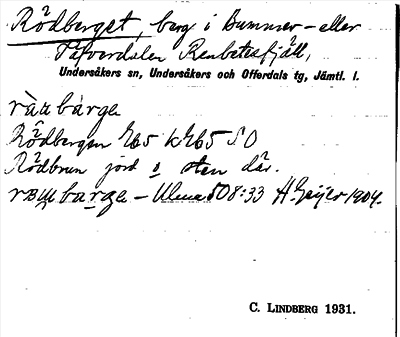 Rödberget, berg i Bummer- eller
Täfverdalen Renbetesfjäll,
Undersåkers sn, Undersåkers och Offerdals tg, Jämtl. l.
Rödbergen K65 SO
Rödbrun jord o sten där.
barge - 508:33 H. Geijer 1904.
C. LINDBERG 1931.